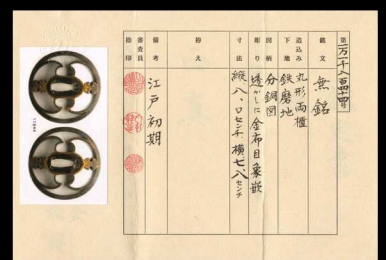 第一万二千八百四十四号
銘文 無銘
造込み 丸形両櫃
下地 鉄磨地
図柄 分銅図
彫り 透かしに金布目象嵌
寸法 縦八、〇センチ、横七、八センチ
拵え
備考 江戸初期
審査員
印